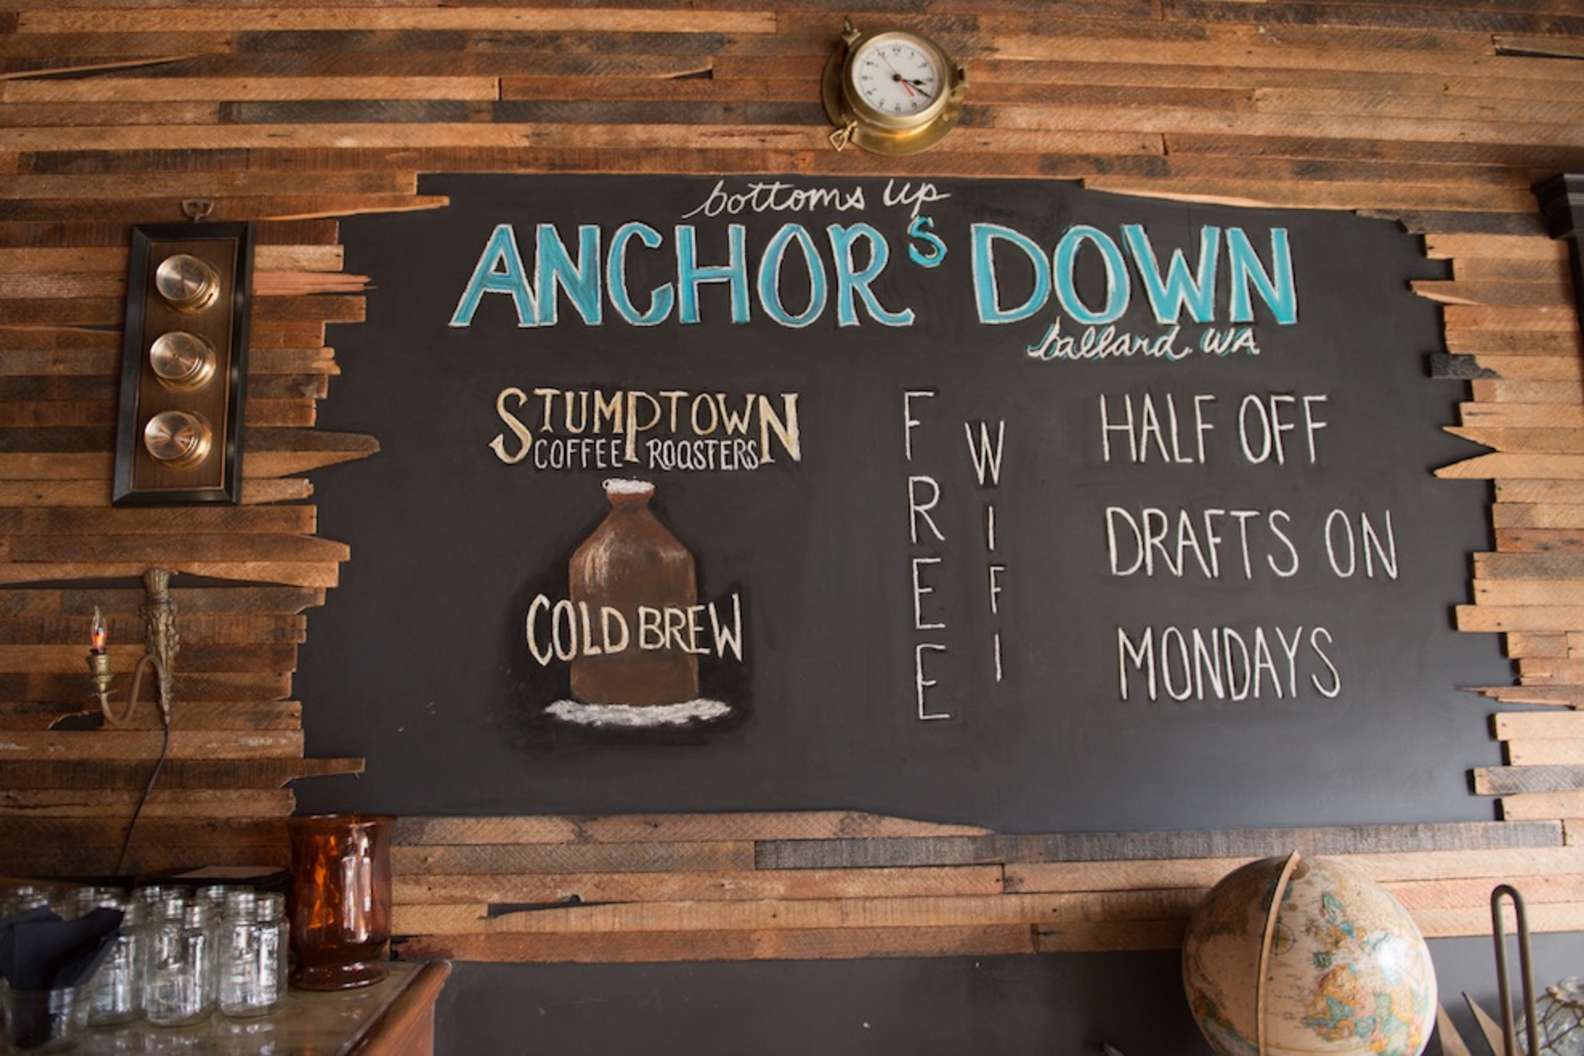 bottoms up
ANCHORS DOWN
ballard. WA
STUMPTOWN
COFFEE ROASTERS
COLD BREW
FREE
WIFI
HALF OFF
DRAFTS ON
MONDAYS